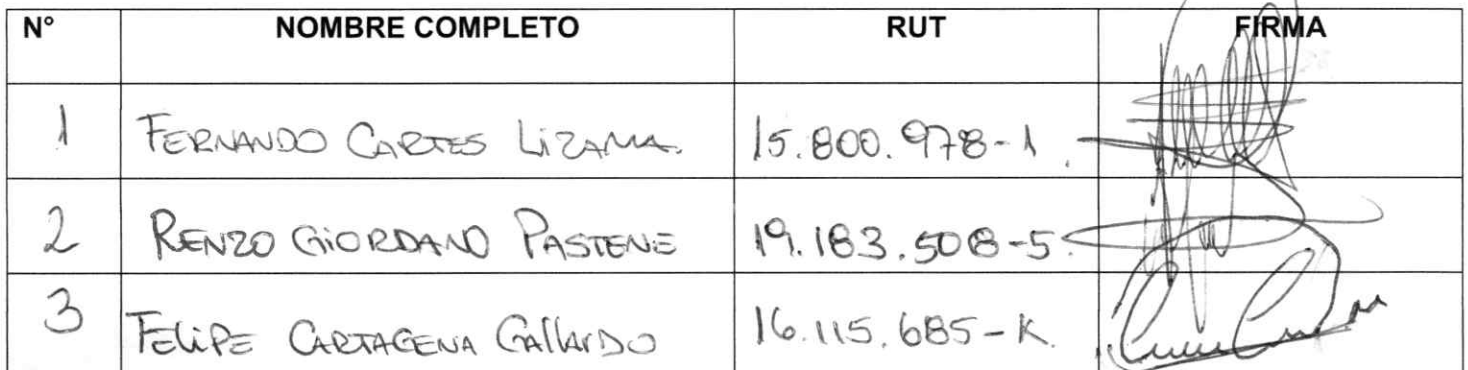 N° NOMBRE COMPLETO RUT FIRMA
1 FERNANDO CARTES LIZAMA. 15.800.978-1
2 RENZO GIORDANO PASTENE 19.183.508-5
3 FELIPE CARTAGENA GALLARDO 16.115.685-K